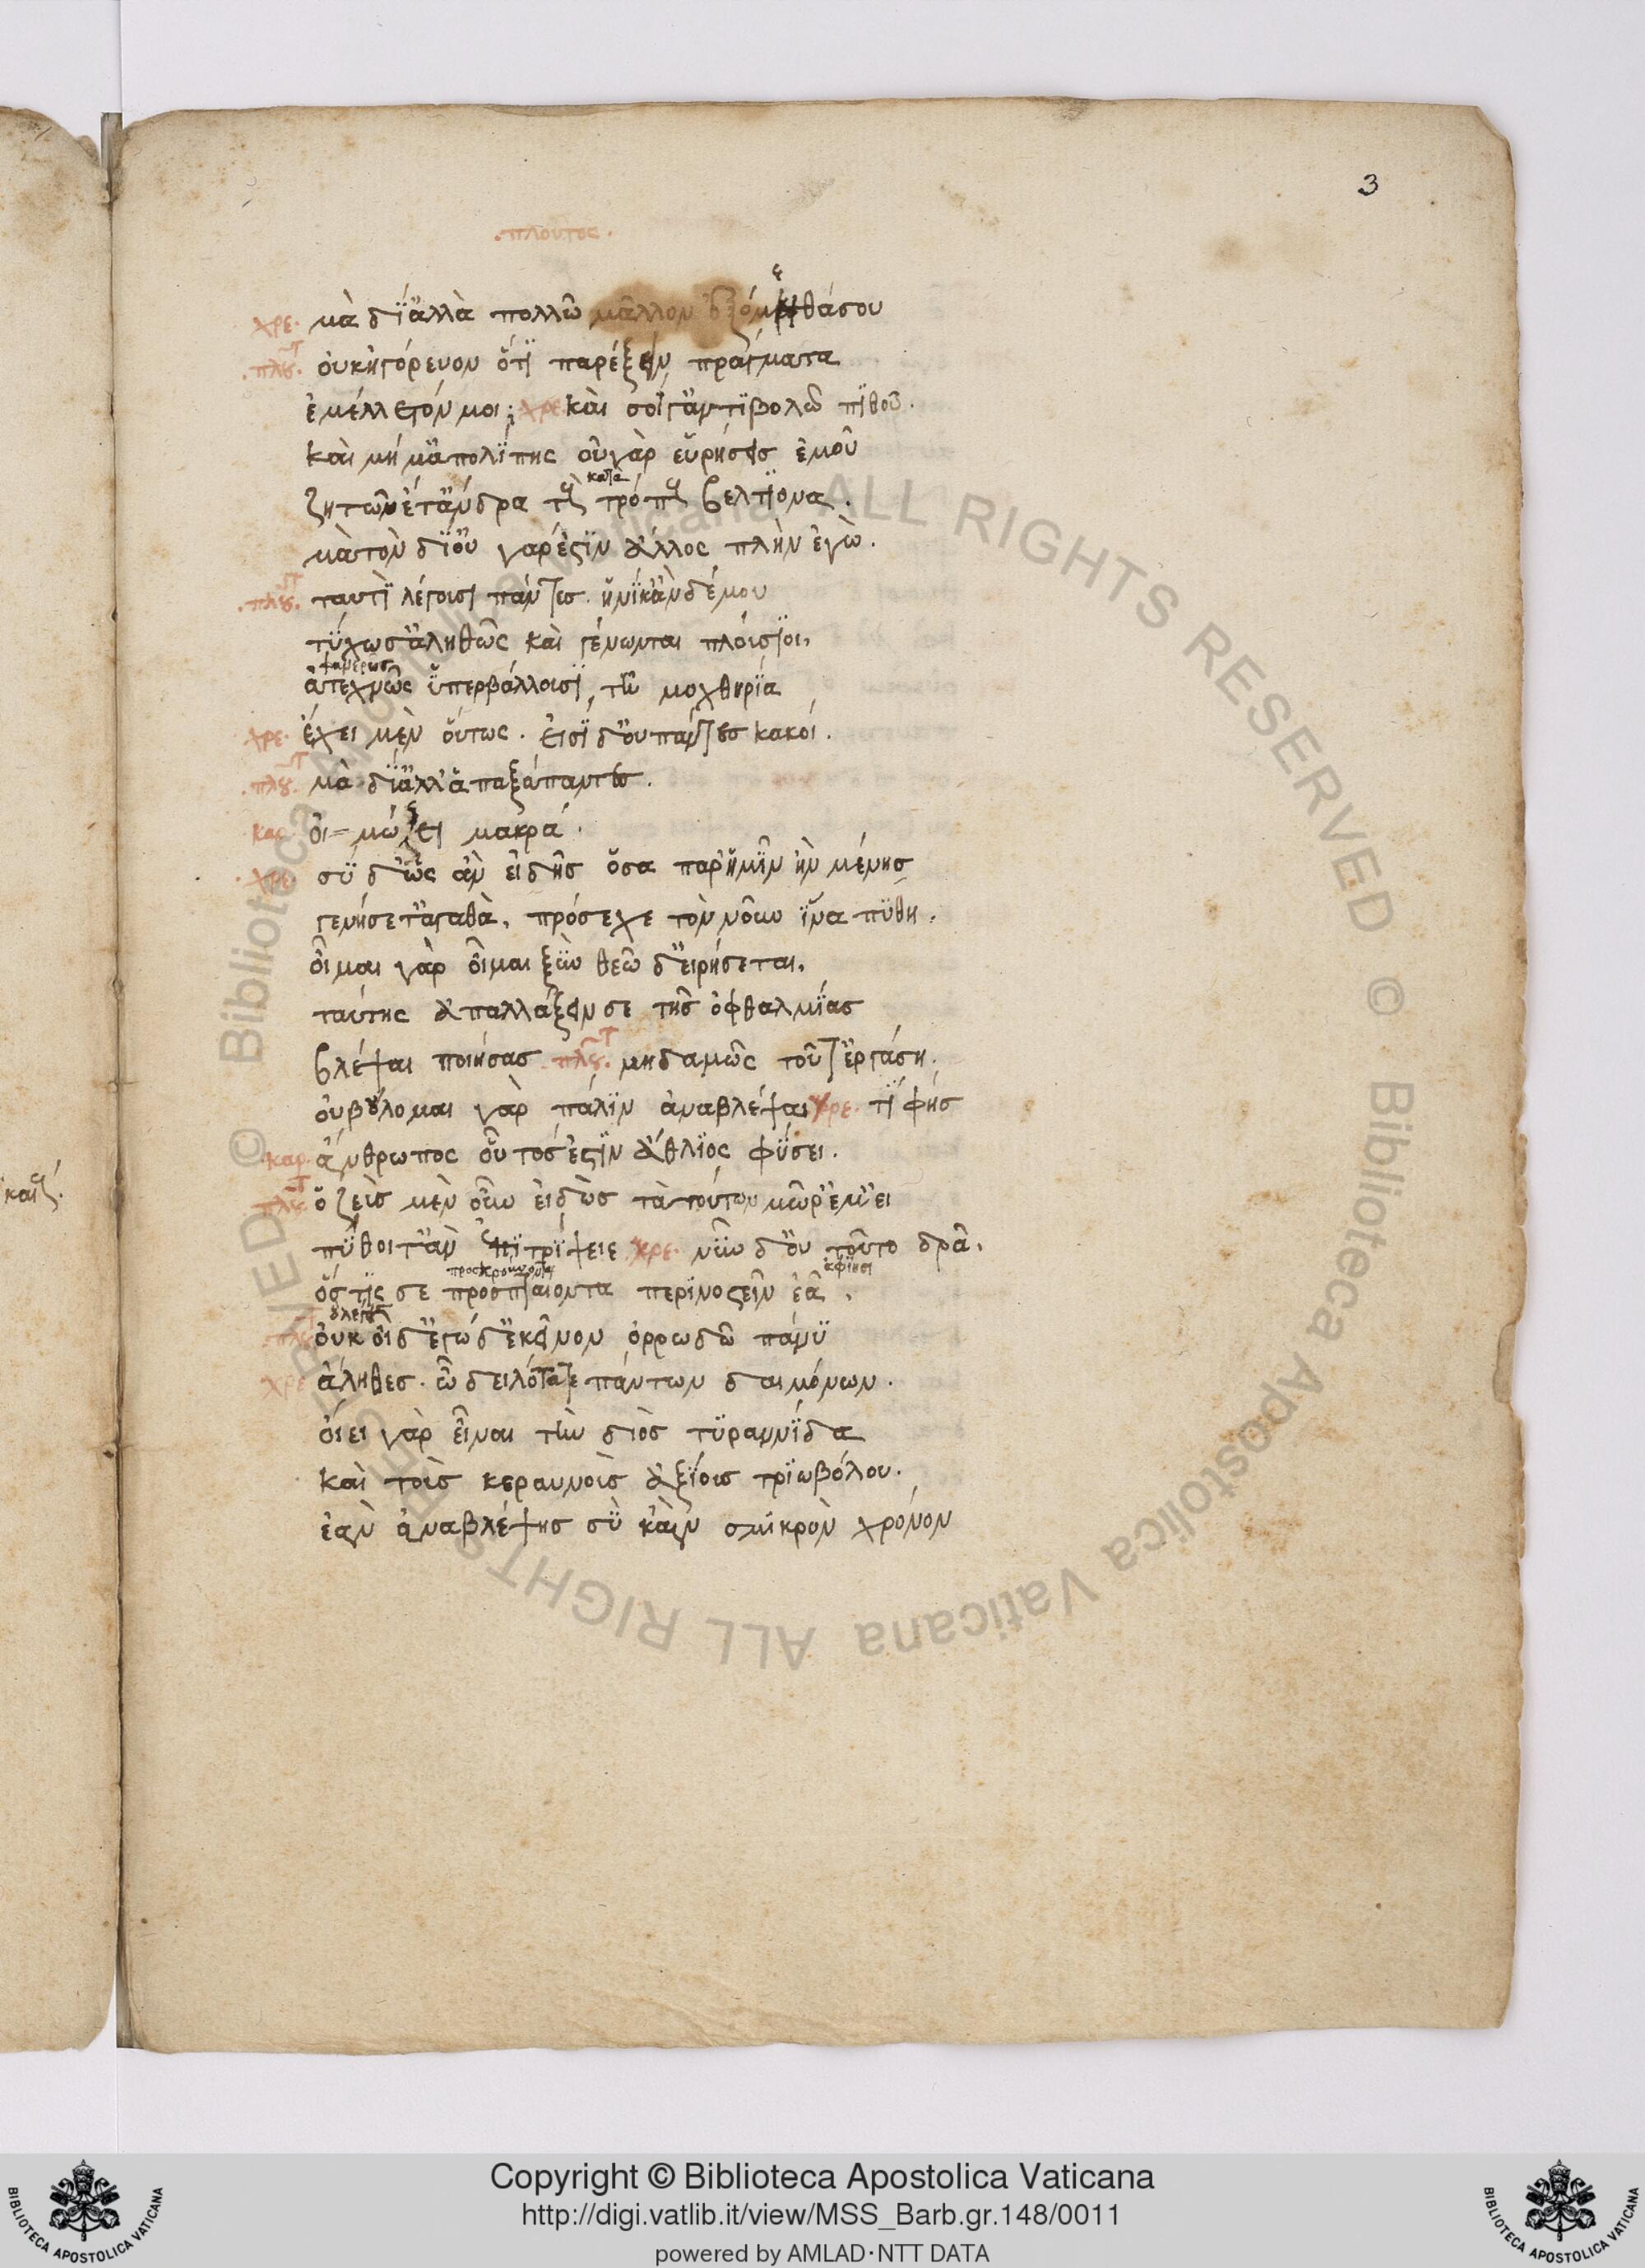 3
.πλουτος.
χρε. μὰ δί' ἀλλὰ πολλῶ μᾶλλον ἐχόμεθάσου
.πλου. οὐκἠγόρευον ὅτϊ παρέξειν πράγματα
ἐμέλλετόν μοι; χρε καὶ σοί γ' ἀντϊβολῶ πϊθοῦ.
καὶ μή μ' ἀπολίπης οὐγὰρ εὑρήσεις ἐμοῦ
κατα
ζητῶν ἔτ' ἄνδρα τοὺς τρόπους βελτϊονα.
μὰτὸν δϊ' οὐ γαρἐστϊν ἄλλος πλὴν ἐγώ.
.πλου. ταυτὶ λέγουσι πάντες. ἡνίκ' ἂνδέμου
τύχωσ' ἀληθῶς καὶ γένωνται πλούσϊοι,
φανερως
ἀτεχνῶς ὑπερβάλλουσϊ, τῆ μοχθηρία
χρε. ἔχει μὲν οὕτως. εἰσὶ δ' οὐπάντες κακοί.
.πλου. μὰ δί' ἀλλ' ἁπαξάπαντες.
καρ οἰ=μώξει μακρά.
.χρε. σὺ δ' ὡς ἂν εἰδῆς ὅσα παρ' ἡμῖν ἢν μένης
γενήσετ' ἀγαθὰ, πρόσεχε τὸν νοῦν ἵνα πύθη.
οἶμαι γὰρ οἶμαι ξὺν θεῶ δ' εἰρήσεται,
ταύτης ἀπαλλάξειν σε τῆς ὀφθαλμίας
βλέψαι ποιήσας .πλου. μηδαμῶς τοῦτ' ἐργάση.
οὐβούλομαι γὰρ πάλιν ἀναβλέψαι χρε. τί φής
.καρ. ἄνθρωπος οὗτοσ ἐστϊν ἄθλϊος φύσει.
πλου. ὁ ζεὺς μὲν οὖν εἰδὼς τὰ τούτων μῶρ' ἔμ' εἰ
πύθοιτ' ἂν ἐπϊτρίψειε χρε. νῦν δ' οὐ τοῦτο δρᾶ,
προσκρουοντα ἀφίησι
ὅστϊς σε προσπταίοντα περϊνοστεῖν ἐᾶ.
πλου οὐκ οἶδ' ἐγώ δ' ἐκεῖνον ὀρρωδῶ πάνυ
χρε ἄληθες. ὦ δειλότατε πάντων δαιμόνων.
οἴει γὰρ εἶναι τὴν διὸς τϋραννίδα
καὶ τοὺς κεραυνοὺς ἀξίους τρϊωβόλου.
ἐὰν ἀναβλέψης σὺ κἂν σμικρὸν χρόνον
Copyright © Biblioteca Apostolica Vaticana
http://digi.vatlib.it/view/MSS_Barb.gr.148/0011
powered by AMLAD·NTT DATA
BIBLIOTECA APOSTOLICA VATICANA
BIBLIOTECA APOSTOLICA VATICANA
© Biblioteca Apostolica Vaticana ALL RIGHTS RESERVED © Biblioteca Apostolica Vaticana ALL RIGHTS RESERVED